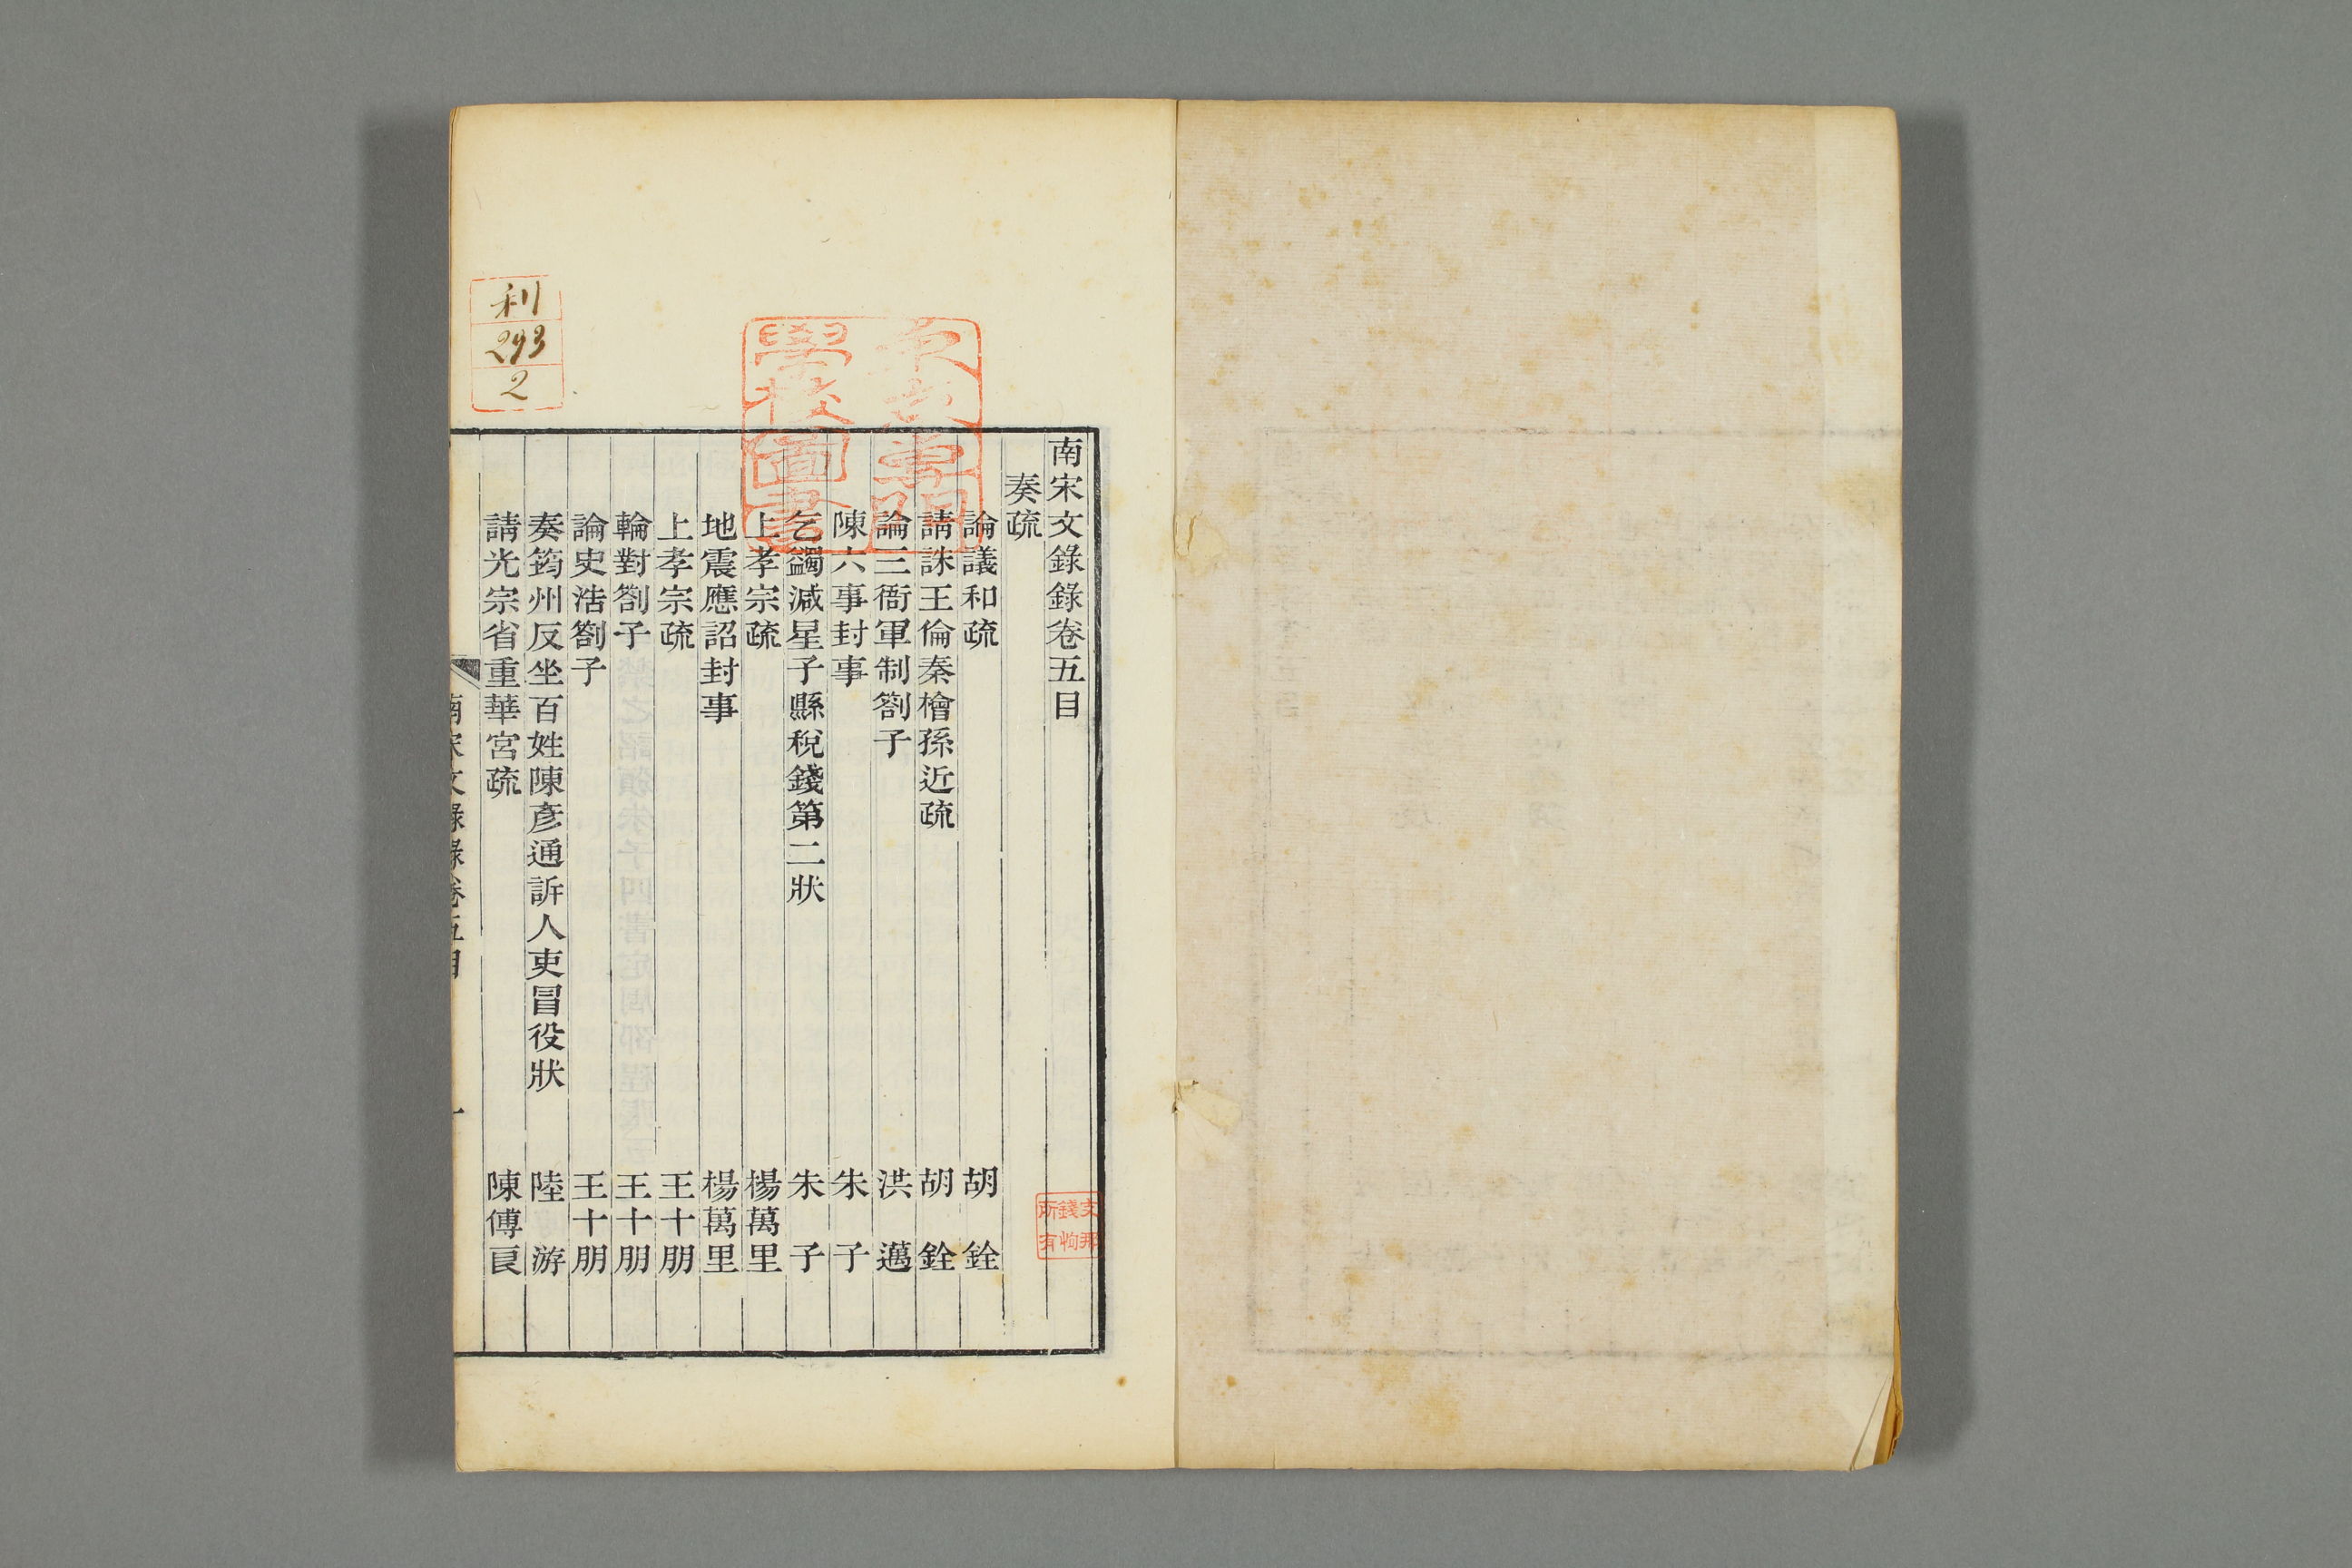 南宋文錄錄卷五目
奏疏
論議和疏 胡銓
請誅王倫秦檜孫近疏 胡銓
論三衙軍制劄子 洪邁
陳六事封事 朱子
乞蠲減星子縣稅錢第二狀 朱子
上孝宗疏 楊萬里
地震應詔封事 楊萬里
上孝宗疏 王十朋
輪對劄子 王十朋
論史浩劄子 王十朋
奏筠州反坐百姓陳彥通訴人吏冒役狀 陸游
請光宗省重華宮疏 陳傅良
南宋文錄錄卷五目 一
利
293
2
學校圖書
支那
錢恂
所有